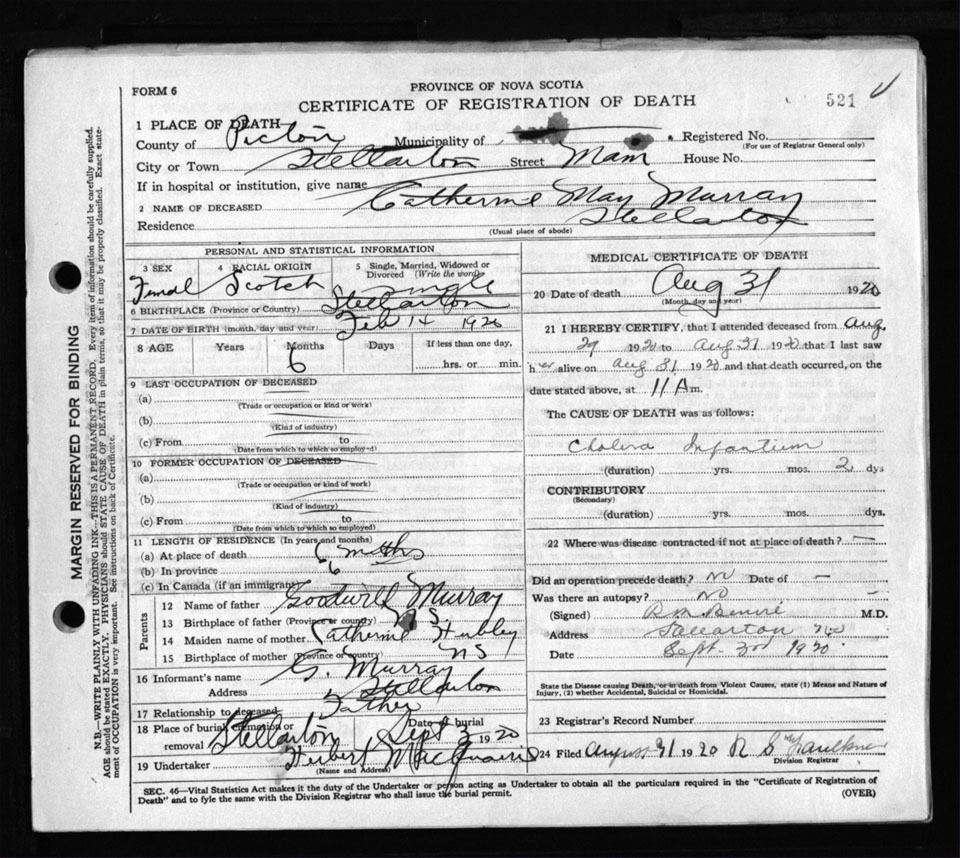 FORM 6
PROVINCE OF NOVA SCOTIA
CERTIFICATE OF REGISTRATION OF DEATH
521
1 PLACE OF DEATH
County of Pictou Municipality of Registered No.
(For use of Registrar General only)
City or Town Stellarton Street Main House No.
If in hospital or institution, give name
2 NAME OF DECEASED Catherine May Murray
Residence Stellarton
(Usual place of abode)
PERSONAL AND STATISTICAL INFORMATION
3 SEX Femal
4 RACIAL ORIGIN Scotch
5 Single, Married, Widowed or Divorced (Write the word) Single
6 BIRTHPLACE (Province or Country) Stellarton
7 DATE OF BIRTH (month, day and year) Feb 14 1920
8 AGE Years Months Days If less than one day,
6 hrs. or min.
9 LAST OCCUPATION OF DECEASED
(a)
(Trade or occupation or kind or work)
(b)
(Kind of industry)
(c) From to
(Date from which to which so employed)
10 FORMER OCCUPATION OF DECEASED
(a)
(Trade or occupation or kind of work)
(b)
(Kind of industry)
(c) From to
(Date from which to which so employed)
11 LENGTH OF RESIDENCE (In years and months)
(a) At place of death 6 mths
(b) In province 6
(c) In Canada (if an immigrant)
Parents
12 Name of father Murray
13 Birthplace of father (Province or country) N S
14 Maiden name of mother Catherine Hubley
15 Birthplace of mother (Province or country) NS
16 Informant's name G. Murray
Address Stellarton
17 Relationship to deceased Father
18 Place of burial cremation or removal Stellarton Date of burial Sept 2 1920
19 Undertaker Herbert
(Name and Address)
MEDICAL CERTIFICATE OF DEATH
20 Date of death Aug 31 1920
(Month, day and year)
21 I HEREBY CERTIFY, that I attended deceased from Aug
29 1920 to Aug 31 1920 that I last saw
her alive on Aug 31 1920 and that death occurred, on the
date stated above, at 11 A m.
The CAUSE OF DEATH was as follows:
Cholera Infantium
(duration) yrs. mos. 2 dys
CONTRIBUTORY
(Secondary)
(duration) yrs. mos. dys.
22 Where was disease contracted if not at place of death? —
Did an operation precede death? No Date of —
Was there an autopsy? No
(Signed) M.D.
Address Stellarton NS
Date Sept. 2nd 1920.
State the Disease causing Death, or in death from Violent Causes, state (1) Means and Nature of Injury, (2) whether Accidental, Suicidal or Homicidal.
23 Registrar's Record Number
24 Filed August 31 1920 R S McFaulkner
Division Registrar
SEC. 46—Vital Statistics Act makes it the duty of the Undertaker or person acting as Undertaker to obtain all the particulars required in the "Certificate of Registration of
Death" and to fyle the same with the Division Registrar who shall issue the burial permit. (OVER)
MARGIN RESERVED FOR BINDING
N.B.—WRITE PLAINLY WITH UNFADING INK—THIS IS A PERMANENT RECORD. Every item of information should be carefully supplied.
AGE should be stated EXACTLY. PHYSICIANS should STATE CAUSE OF DEATH in plain terms, so that it may be properly classified. Exact statement of OCCUPATION is very important. See instructions on back of Certificate.